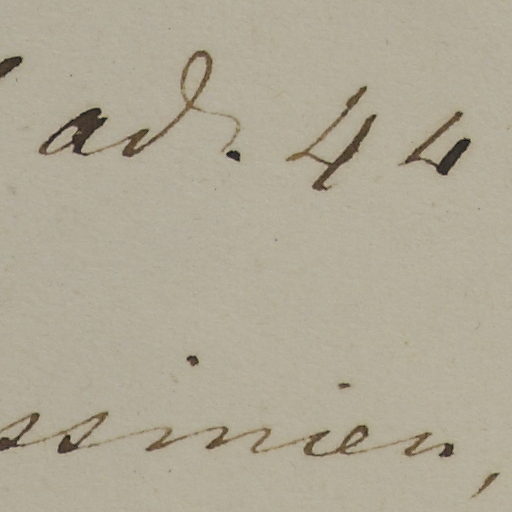 ad. 44
ssinien,